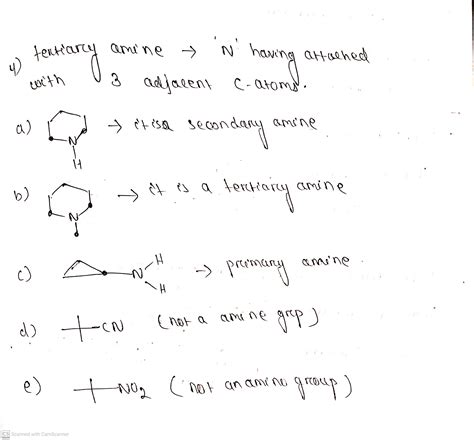 4) tertiary amine → 'N' having attached
with 3 adjacent C-atoms.
a) N H → it is a secondary amine
b) N → it is a tertiary amine
c) N H H → primary amine
d) CN (not a amine grp)
e) NO2 (not an amino group)
Scanned with CamScanner